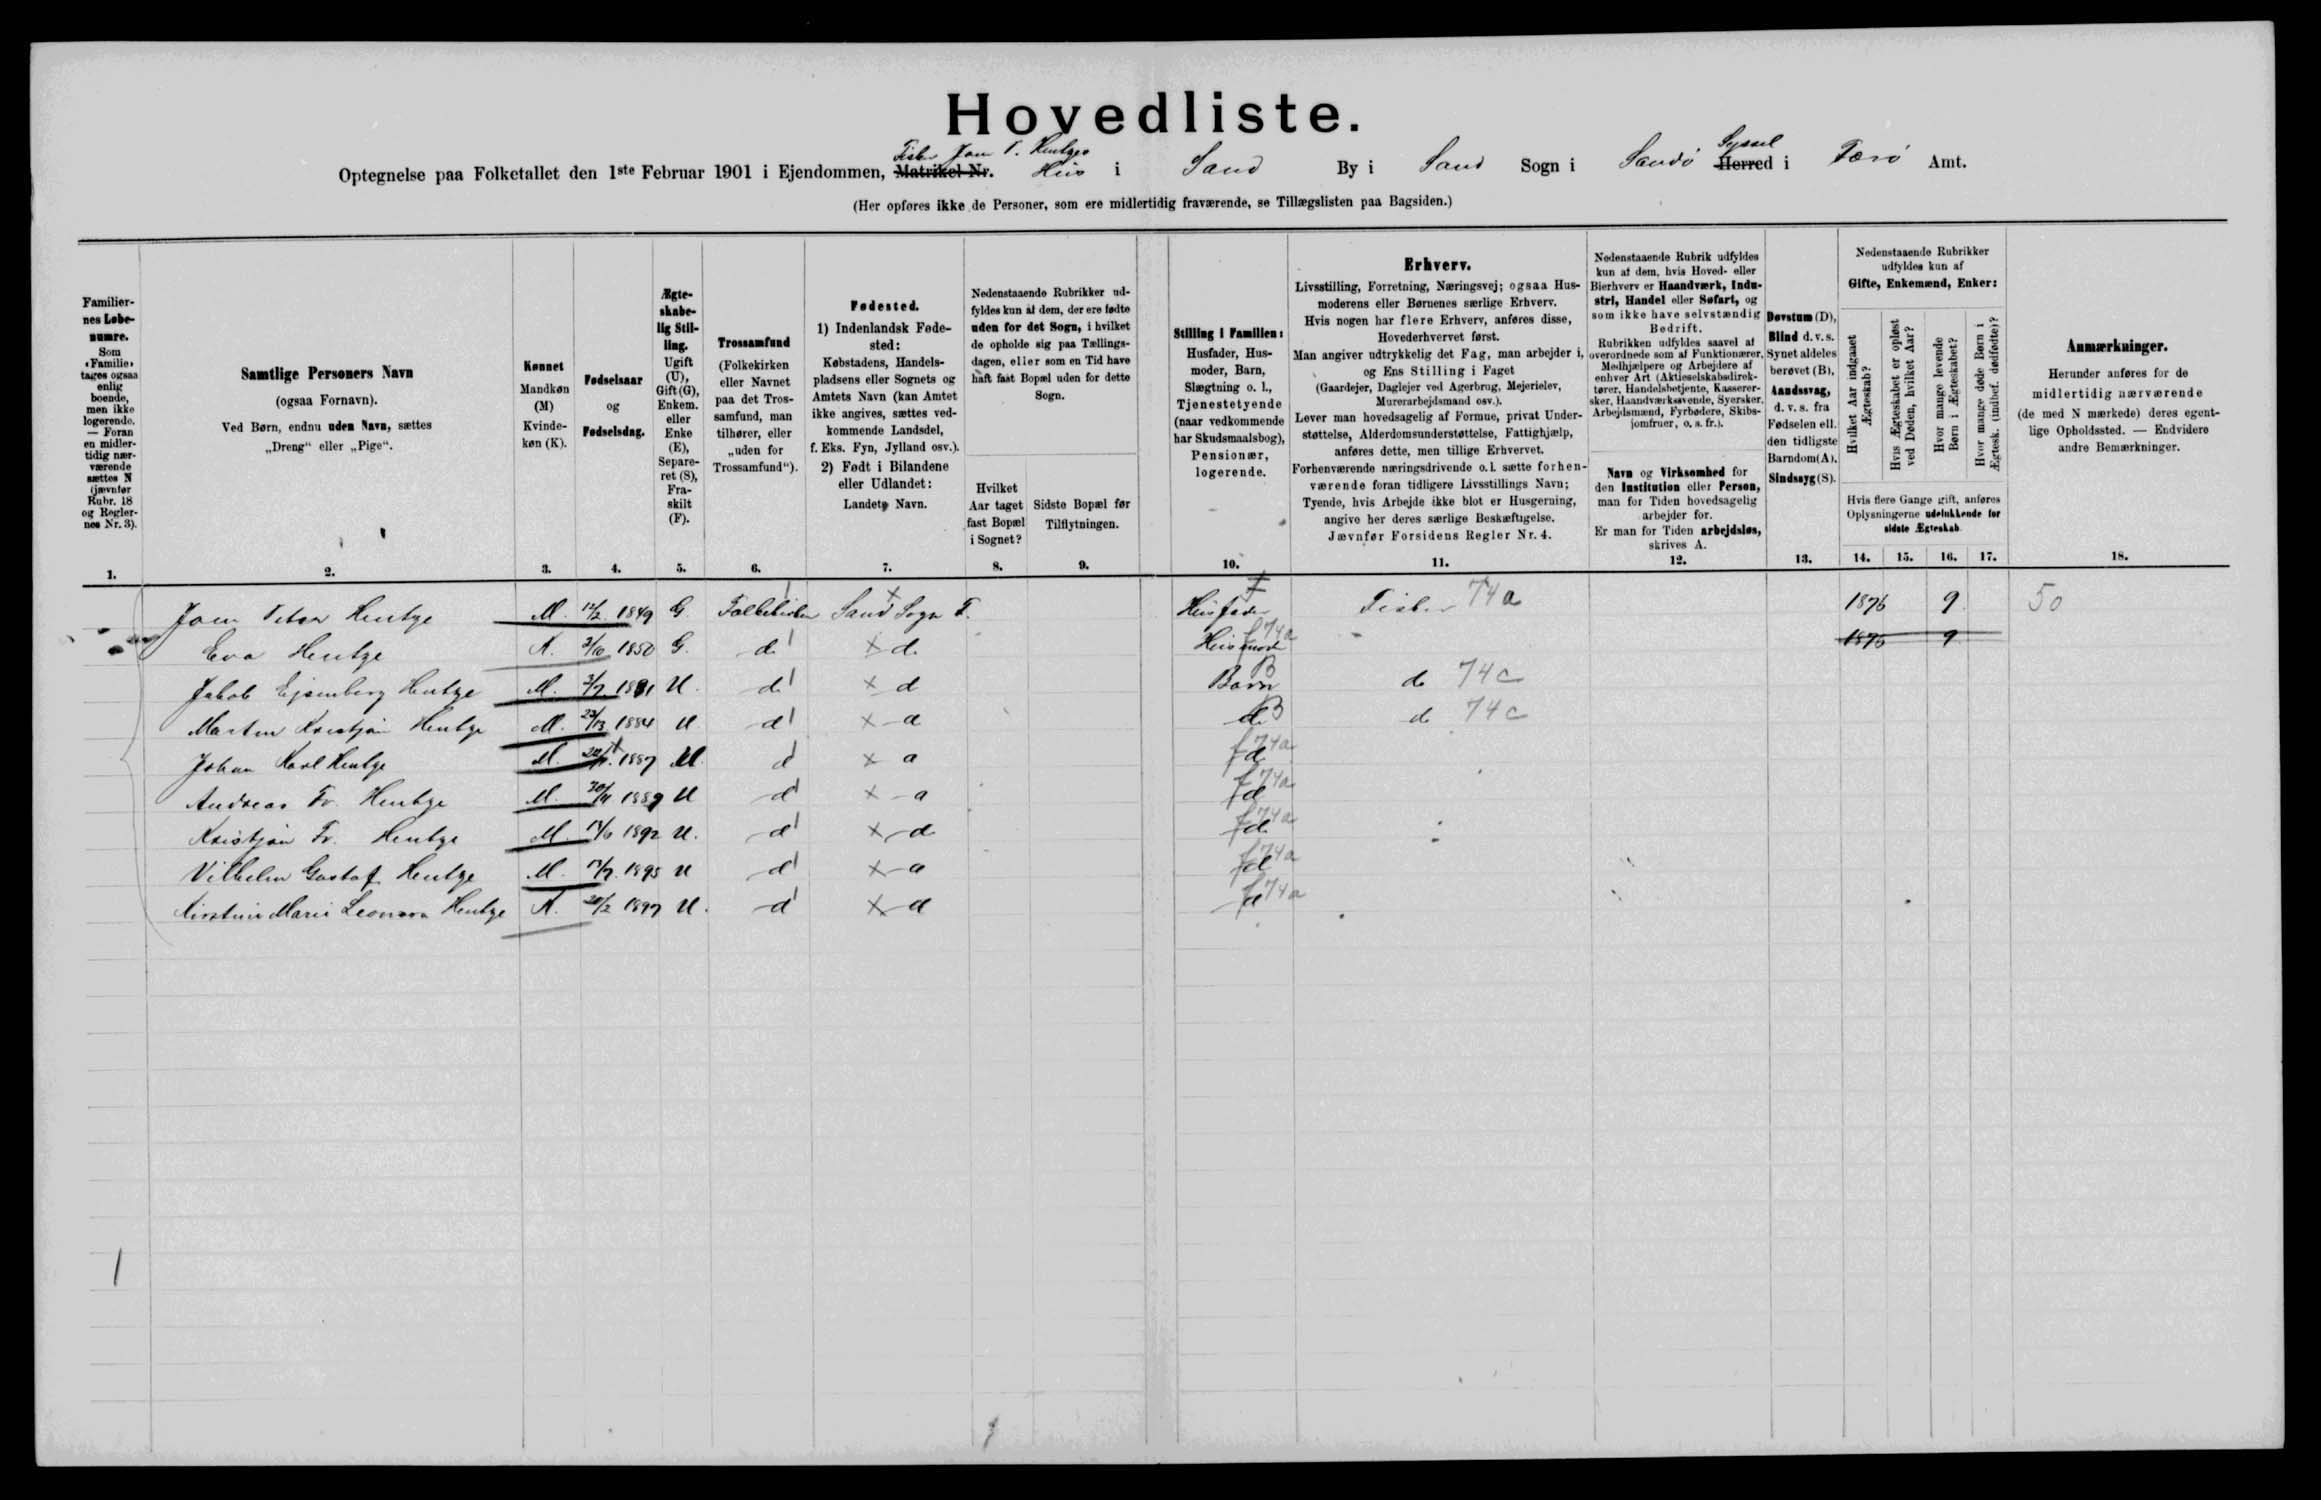 Hovedliste.
Fisker Joen P. Hentzes Syssel
Optegnelse paa Folketallet den 1ste Februar 1901 i Ejendommen, Matrikel Nr. Hus i Sand By i Sand Sogn i Sandø Herred i Færø Amt.
(Her opføres ikke de Personer, som ere midlertidig fraværende, se Tillægslisten paa Bagsiden.)
Familiernes Løbenumre.
Som «Familie» tages ogsaa enlig boende, men ikke logerende. — Foran en midlertidig nærværende sættes N (jævnfør Rubr. 18 og Reglernes Nr. 3).
1.
Samtlige Personers Navn
(ogsaa Fornavn).
Ved Børn, endnu uden Navn, sættes
„Dreng“ eller „Pige“.
2.
Kønnet
Mandkøn (M)
Kvindekøn (K).
3.
Fødselsaar
og
Fødselsdag.
4.
Ægteskabelig Stilling.
Ugift (U), Gift (G), Enkem. eller Enke (E), Separeret (S), Fraskilt (F).
5.
Trossamfund
(Folkekirken eller Navnet paa det Trossamfund, man tilhører, eller „uden for Trossamfund“).
6.
Fødested.
1) Indenlandsk Fødested:
Købstadens, Handelspladsens eller Sognets og Amtets Navn (kan Amtet ikke angives, sættes vedkommende Landsdel, f. Eks. Fyn, Jylland osv.).
2) Født i Bilandene eller Udlandet:
Landets Navn.
7.
Nedenstaaende Rubrikker udfyldes kun af dem, der ere fødte uden for det Sogn, i hvilket de opholde sig paa Tællingsdagen, eller som en Tid have haft fast Bopæl uden for dette Sogn.
Hvilket Aar taget fast Bopæl i Sognet?
8.
Sidste Bopæl før Tilflytningen.
9.
Stilling i Familien:
Husfader, Husmoder, Barn, Slægtning o. l., Tjenestetyende (naar vedkommende har Skudsmaalsbog), Pensionær, logerende.
10.
Erhverv.
Livsstilling, Forretning, Næringsvej; ogsaa Husmoderens eller Børnenes særlige Erhverv.
Hvis nogen har flere Erhverv, anføres disse, Hovederhvervet først.
Man angiver udtrykkelig det Fag, man arbejder i, og Ens Stilling i Faget
(Gaardejer, Daglejer ved Agerbrug, Mejerielev, Murerarbejdsmand osv.).
Lever man hovedsagelig af Formue, privat Understøttelse, Alderdomsunderstøttelse, Fattighjælp, anføres dette, men tillige Erhvervet.
Forhenværende næringsdrivende o. l. sætte forhenværende foran tidligere Livsstillings Navn;
Tyende, hvis Arbejde ikke blot er Husgerning, angive her deres særlige Beskæftigelse.
Jævnfør Forsidens Regler Nr. 4.
11.
Nedenstaaende Rubrik udfyldes kun af dem, hvis Hoved- eller Bierhverv er Haandværk, Industri, Handel eller Søfart, og som ikke have selvstændig Bedrift.
Rubrikken udfyldes saavel af overordnede som af Funktionærer, Medhjælpere og Arbejdere af enhver Art (Aktieselskabsdirektører, Handelsbetjente, Kasserersker, Haandværkssvende, Syersker, Arbejdsmænd, Fyrbødere, Skibsjomfruer, o. s. fr.).
Navn og Virksomhed for den Institution eller Person, man for Tiden hovedsagelig arbejder for.
Er man for Tiden arbejdsløs, skrives A.
12.
Døvstum (D), Blind d. v. s. Synet aldeles berøvet (B), Aandssvag, d. v. s. fra Fødselen ell. den tidligste Barndom (A), Sindssyg (S).
13.
Nedenstaaende Rubrikker udfyldes kun af
Gifte, Enkemænd, Enker:
Hvilket Aar indgaaet Ægteskab?
Hvis Ægteskabet er opløst ved Døden, hvilket Aar?
Hvor mange levende Børn i Ægteskabet?
Hvor mange døde Børn i Ægtesk. (indbef. dødfødte)?
Hvis flere Gange gift, anføres Oplysningerne udelukkende for sidste Ægteskab
14. 15. 16. 17.
Anmærkninger.
Herunder anføres for de midlertidig nærværende (de med N mærkede) deres egentlige Opholdssted. — Endvidere andre Bemærkninger.
18.
Joen Petur Hentze M. 12/2 1849 G. Folkekirken Sand Sogn F. Husfader Fisker 74a 1876 9 50
Eva Hentze K. 3/10 1850 G. d x d. Husmoder f74a 1876 9
Jakob Ejsenberg Hentze M. 3/7 1881 U. d x d Barn B d 74c
Morten Kristjan Hentze M. 1884 U d x d d B d 74c
Johan Karl Hentze M. 1887 U. d x d d f74a
Andreas Fr. Hentze M. 1889 U d x d d f74a
Kristjan Fr. Hentze M. 1892 U. d x d d f74a
Vilhelm Gustaf Hentze M. 1895 U d x d d f74a
Kirstine Marie Leonora Hentze K. 20/2 1897 U. d x d d f74a
1